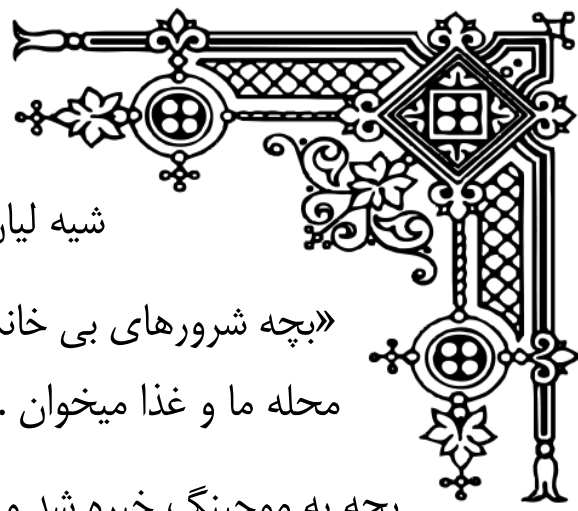 شیه لیان
«بچه شرورهای بی خانه
محله ما و غذا میخوان .
بچه به موجینگ خیره شد و